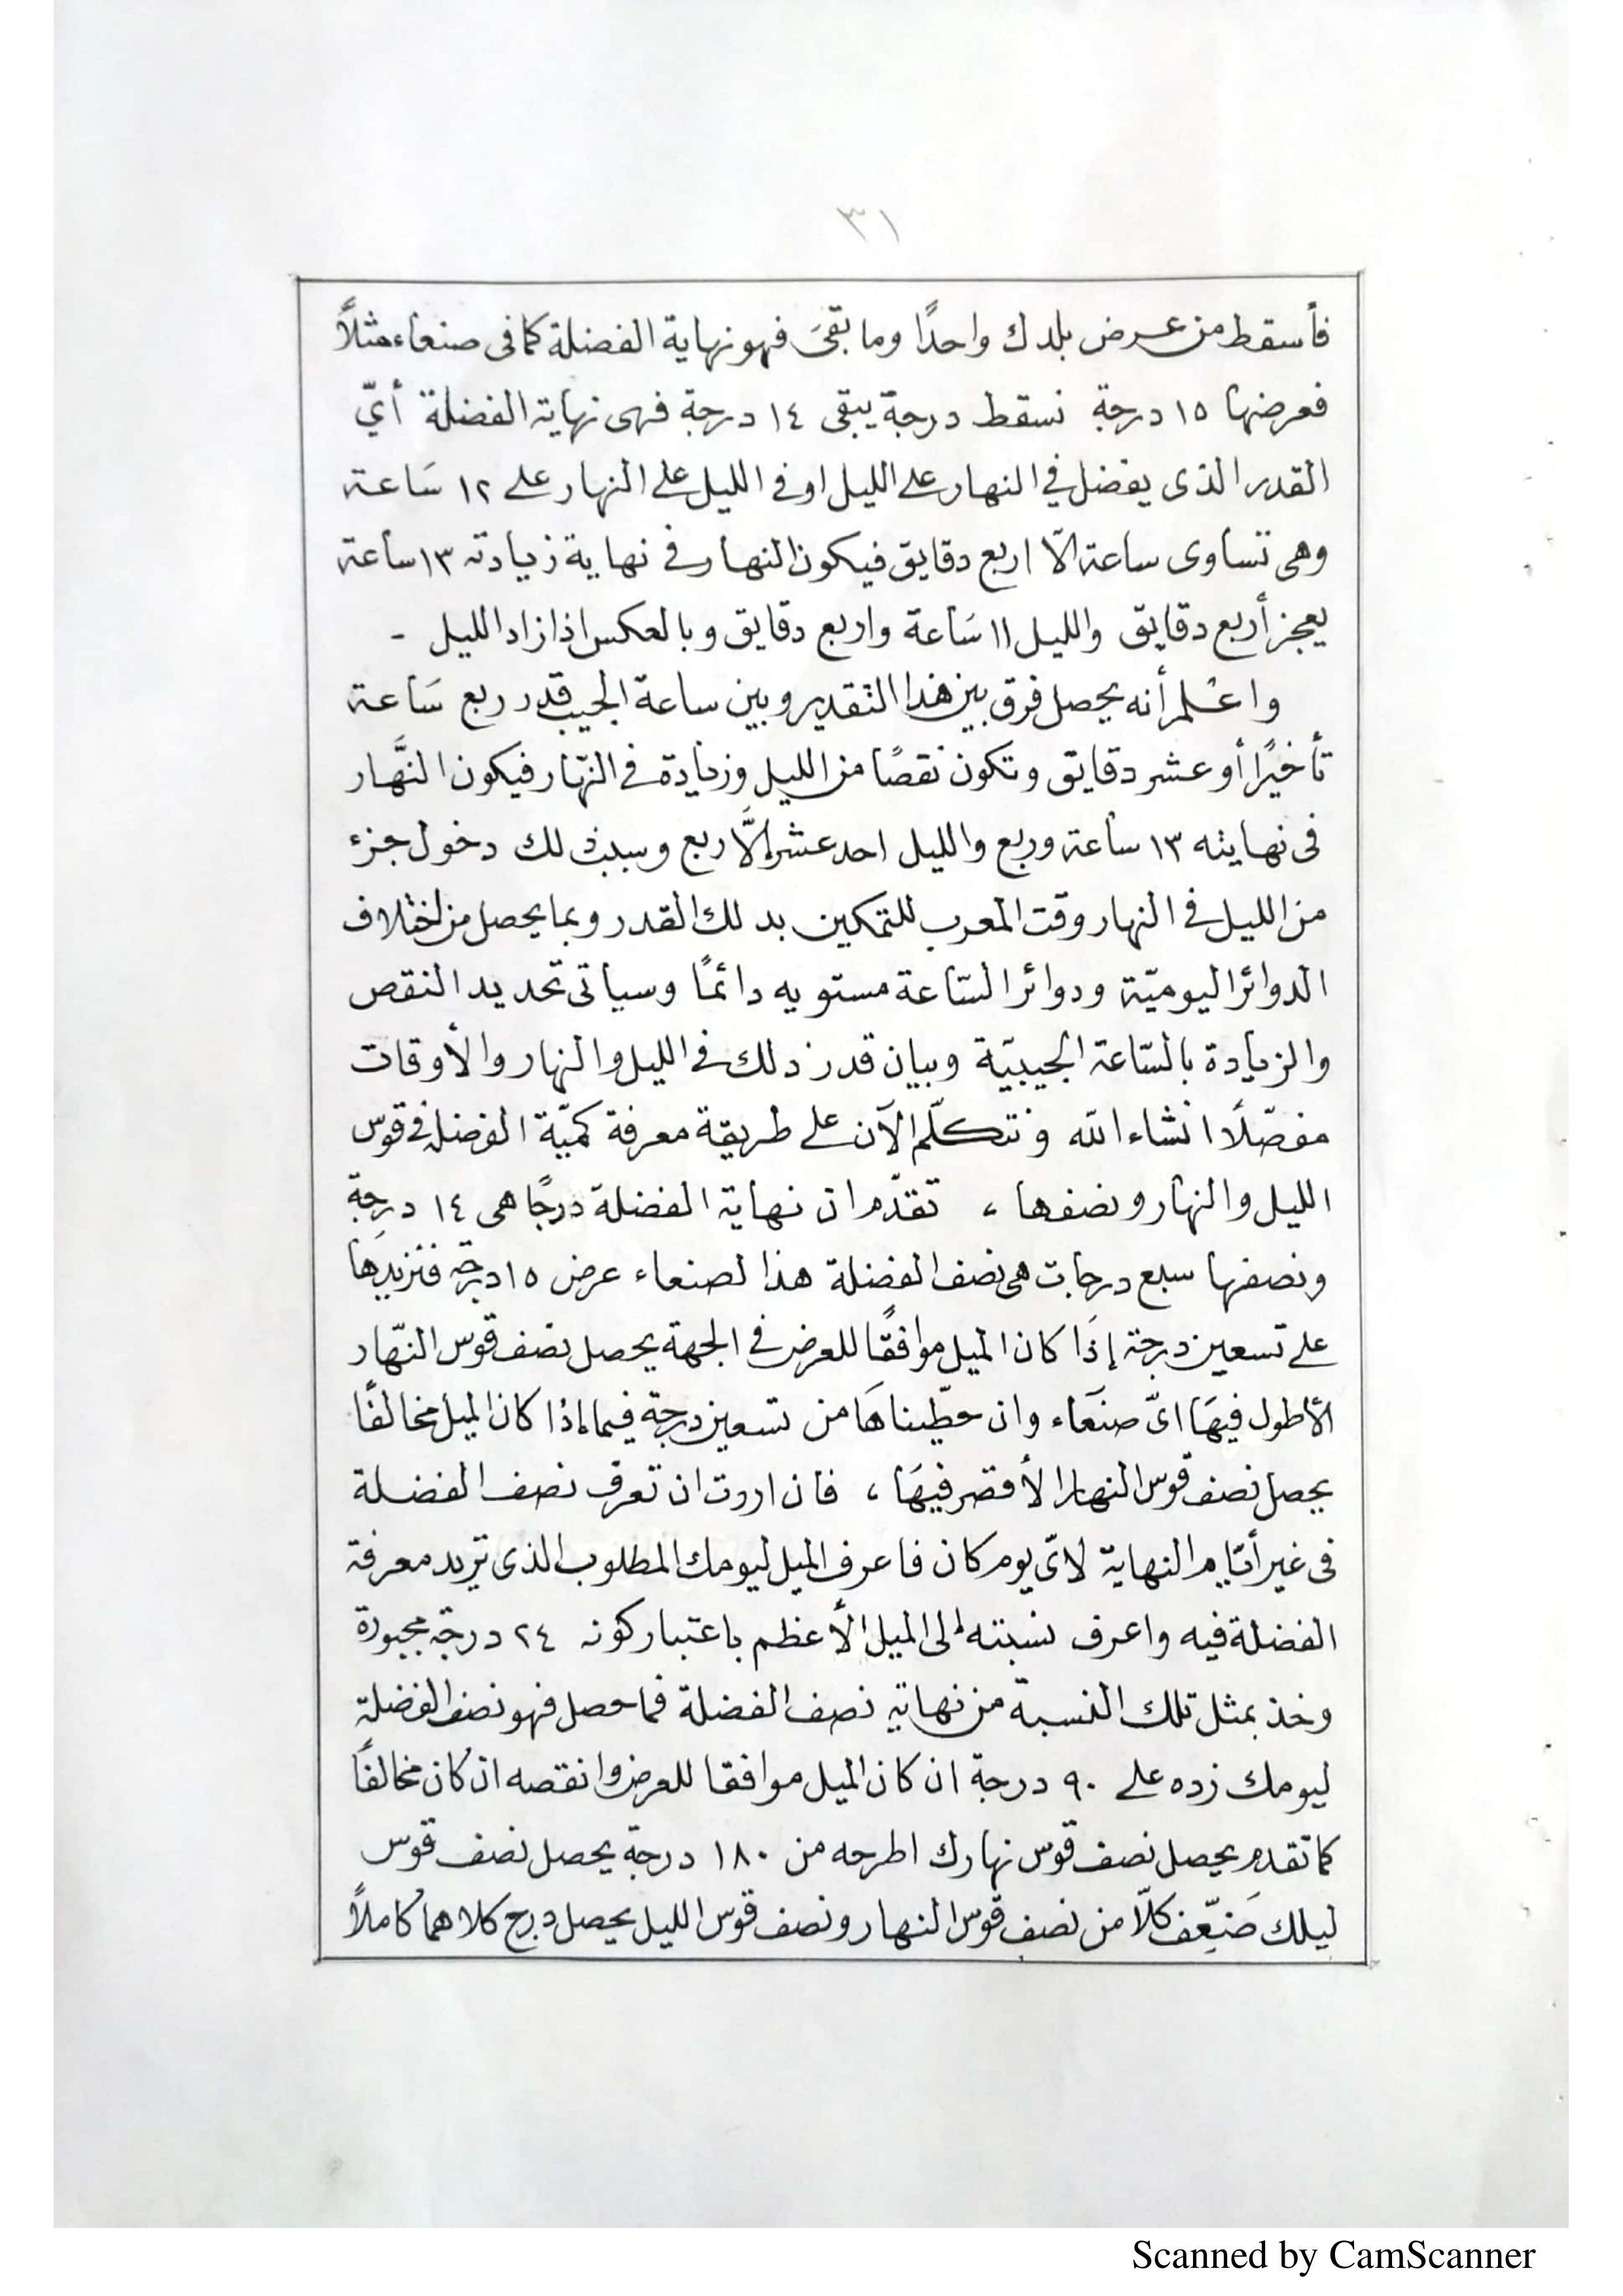 ٣١
فأسقط من عرض بلدك واحدًا وما بقىَ فهو نهاية الفضلة كما فى صنعاء مثلاً
فعرضها ١٥ درجة نسقط درجة يبقى ١٤ درجة فهى نهاية الفضلة أيّ
القدر الذى يفضل في النهار على الليل او في الليل على النهار على ١٢ سَاعة
وهى تساوى ساعة الّا اربع دقايق فيكون النهار في نهاية زيادته ١٣ ساعة
يعجز أربع دقايق والليل ١١ سَاعة واربع دقايق وبالعكس اذا زاد الليل -
واعلم أنه يحصل فرق بين هذا التقدير وبين ساعة الجيب قدر ربع سَاعة
تأخيرًا أو عشر دقايق وتكون نقصًا من الليل وزيادة في النهار فيكون النَّهار
فى نهايته ١٣ ساعة وربع والليل احد عشر إلَّا ربع وسبب ذلك دخول جزء
من الليل في النهار وقت المغرب للتمكين بذلك القدر وبما يحصل من اختلاف
الدوائر اليوميّة ودوائر السّاعة مستويه دائمًا وسيأتى تحديد النقص
والزيادة بالسّاعة الجيبيّة وبيان قدر ذلك في الليل والنهار والأوقات
مفصّلًا انشاء الله ونتكلّم الآن على طريقة معرفة كميّة الفضلة في قوس
الليل والنهار ونصفها ، تقدّم ان نهاية الفضلة درجًا هى ١٤ درجة
ونصفها سبع درجات هى نصف الفضلة هذا لصنعاء عرض ١٥ درجة فنزيدَها
على تسعين درجة إذَا كان الميل موافقًا للعرض في الجهة يحصل نصف قوس النّهار
الأطول فيهَا اىّ صنعَاء وان حطّيناهَا من تسعين درجة فيما إذا كان الميل مخالفًا
يحصل نصف قوس النهار الأقصر فيهَا ، فان اردت ان تعرف نصف الفضلة
فى غير أيّام النهاية لاىّ يوم كان فاعرف الميل ليومك المطلوب الذى تريد معرفة
الفضلة فيه واعرف نسبته إلى الميل الأعظم باعتبار كونه ٢٤ درجة مجبورة
وخذ بمثل تلك النسبة من نهاية نصف الفضلة فما حصل فهو نصف الفضلة
ليومك زده على ٩٠ درجة ان كان الميل موافقا للعرض وانقصه ان كان مخالفًا
كما تقدم يحصل نصف قوس نهارك اطرحه من ١٨٠ درجة يحصل نصف قوس
ليلك ضَعِّف كلًّا من نصف قوس النهار ونصف قوس الليل يحصل درج كلاهما كاملاً
Scanned by CamScanner